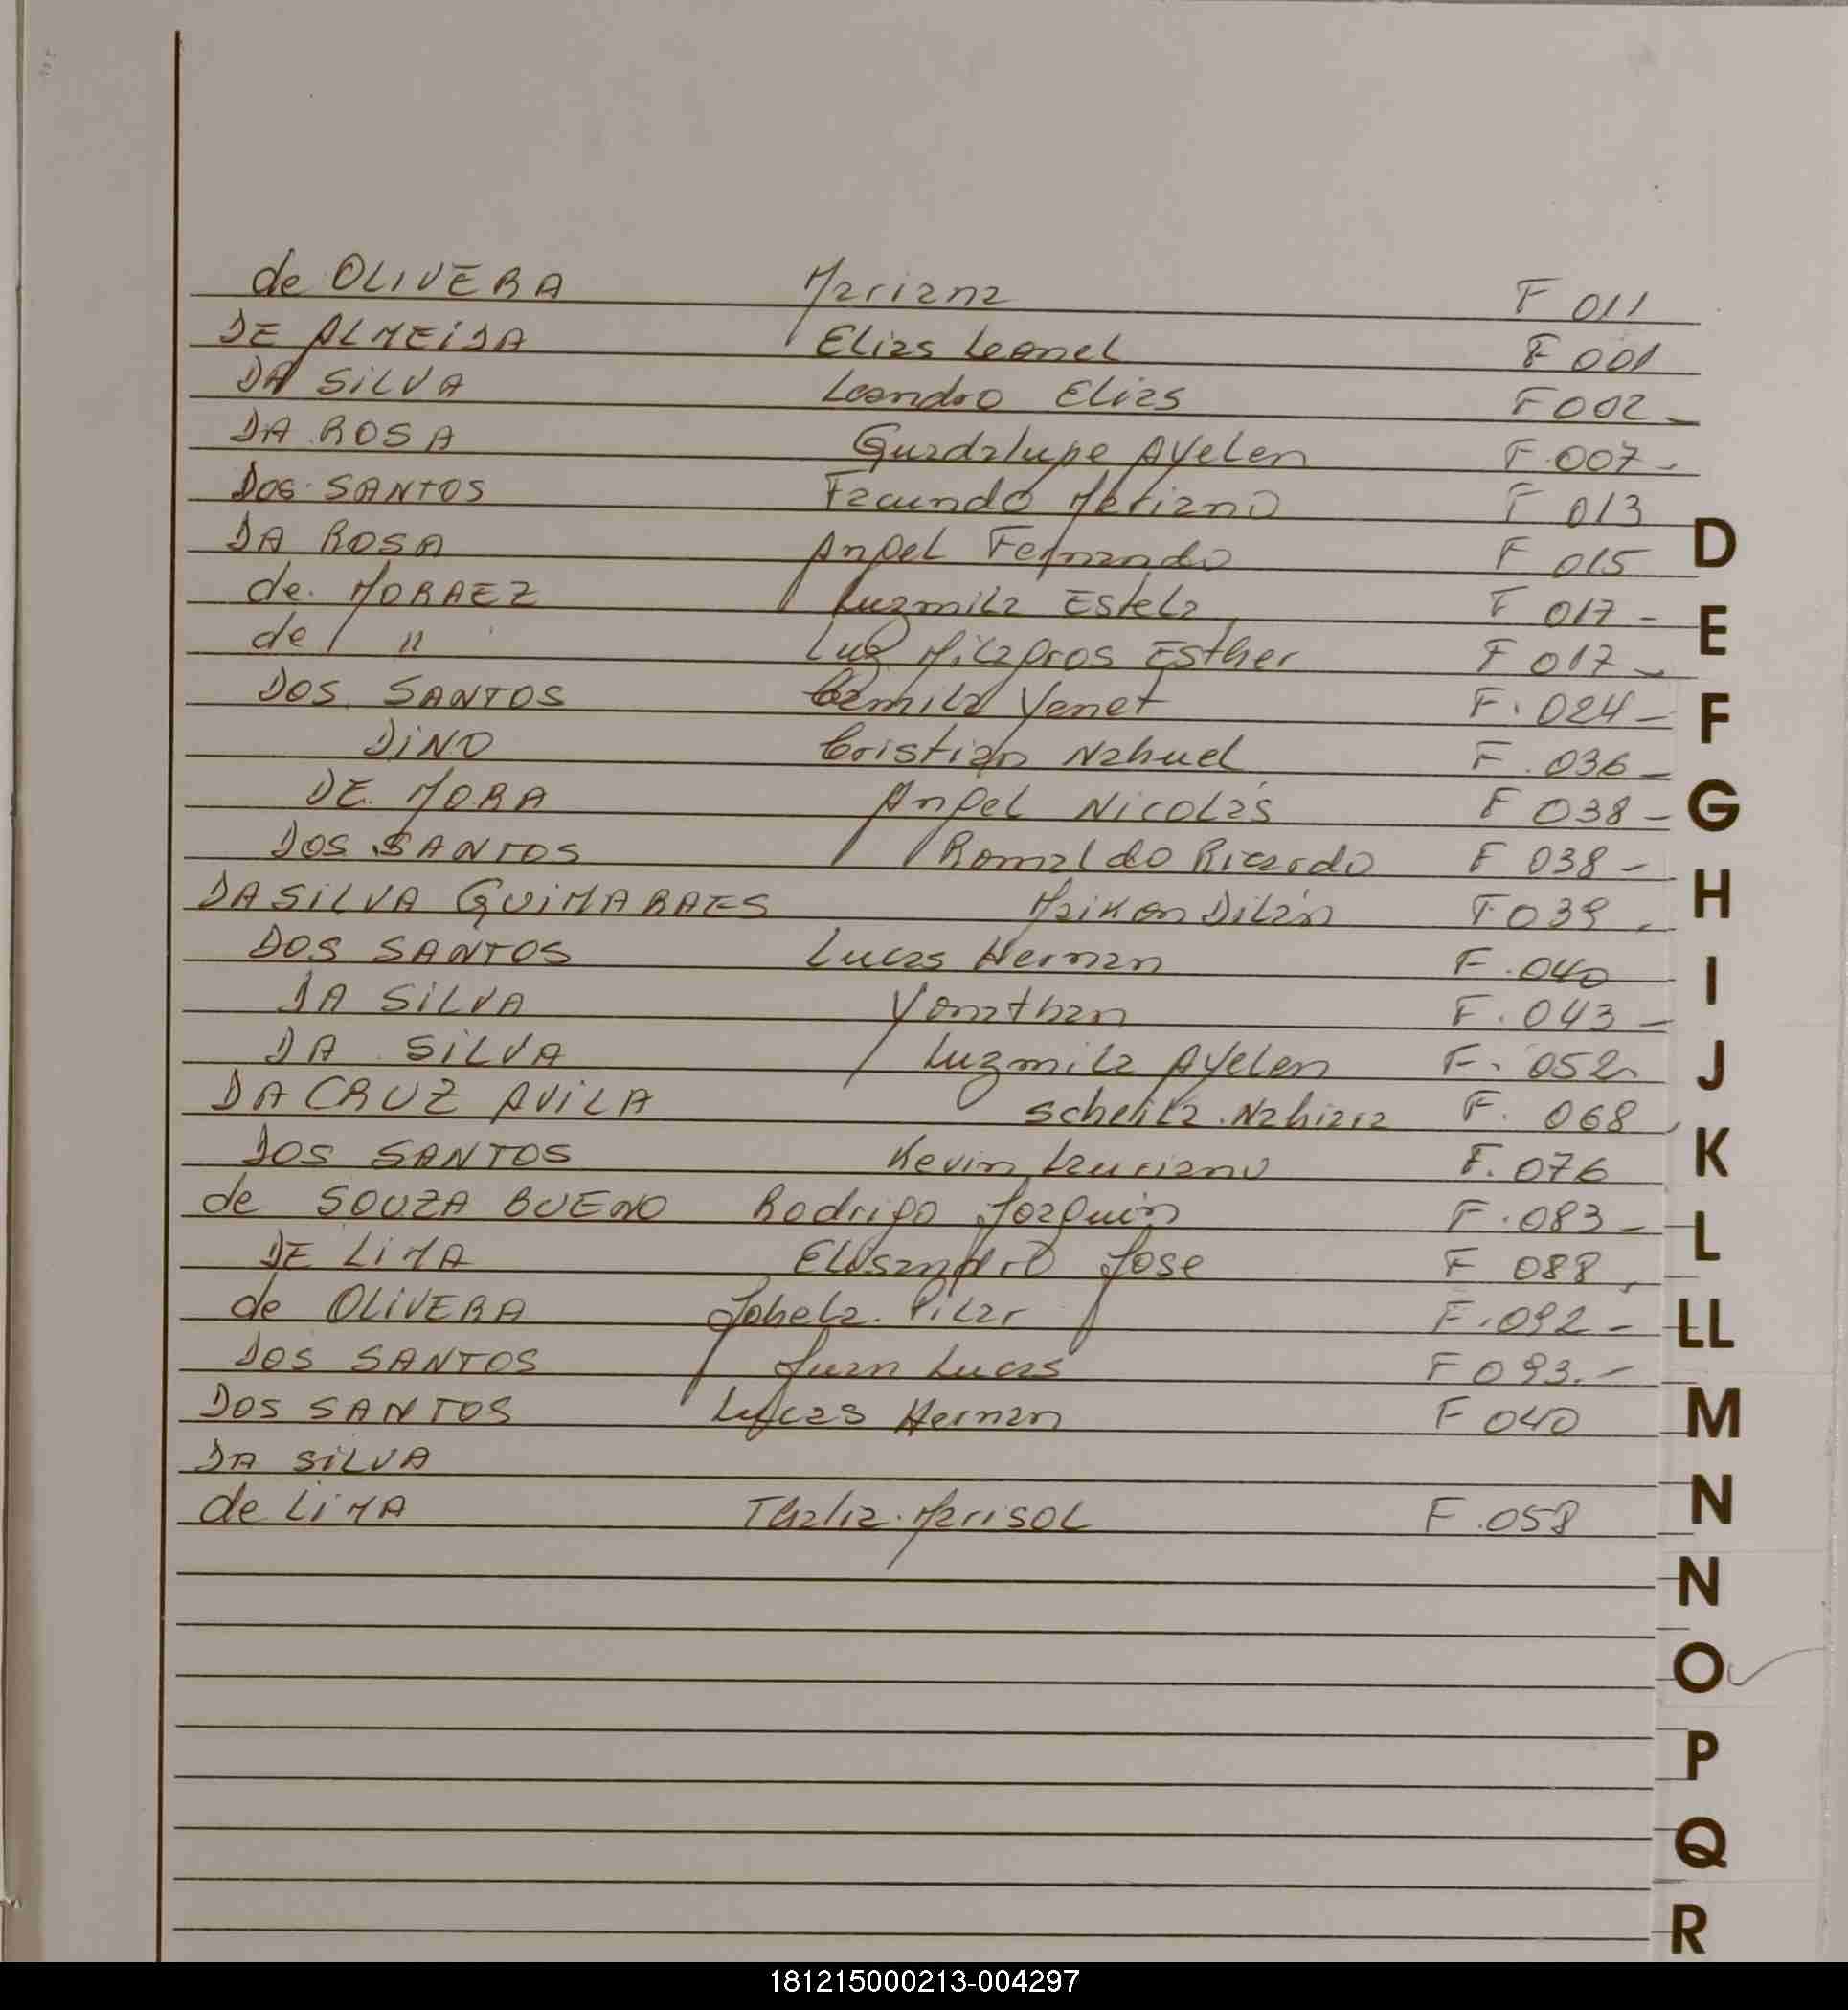 de OLIVERA Mariana F 011
DE ALMEIDA Elias Leonel F 001
DA SILVA Leandro Elias F 002 -
DA ROSA Guadalupe Ayelen F 007 -
DOS SANTOS Facundo Mariano F 013
DA ROSA Angel Fernando F 015
de MORAEZ Luzmila Estela F 017 -
de " Luz Milagros Esther F 017 -
DOS SANTOS Camila Yanet F. 024 -
DINO Cristian Nahuel F. 036 -
DE MORA Angel Nicolás F 038 -
DOS SANTOS Romaldo Ricardo F 038 -
DA SILVA GUIMARAES Maikon Dilán F 039
DOS SANTOS Lucas Hernan F. 040
DA SILVA Yonathan F. 043 -
DA SILVA Luzmila Ayelen F. 052
DA CRUZ AVILA Scheila Nahiara F. 068
DOS SANTOS Kevin Lauriano F. 076
de SOUZA BUENO Rodrigo Joaquin F. 083 -
DE LIMA Elisandro Jose F 088
de OLIVERA Pilar F. 092 -
DOS SANTOS Juan Lucas F 093. -
DOS SANTOS Lucas Hernan F 040
DA SILVA
de LIMA Thalia Marisol F. 058
D
E
F
G
H
I
J
K
L
LL
M
N
N
O
P
Q
R
181215000213-004297